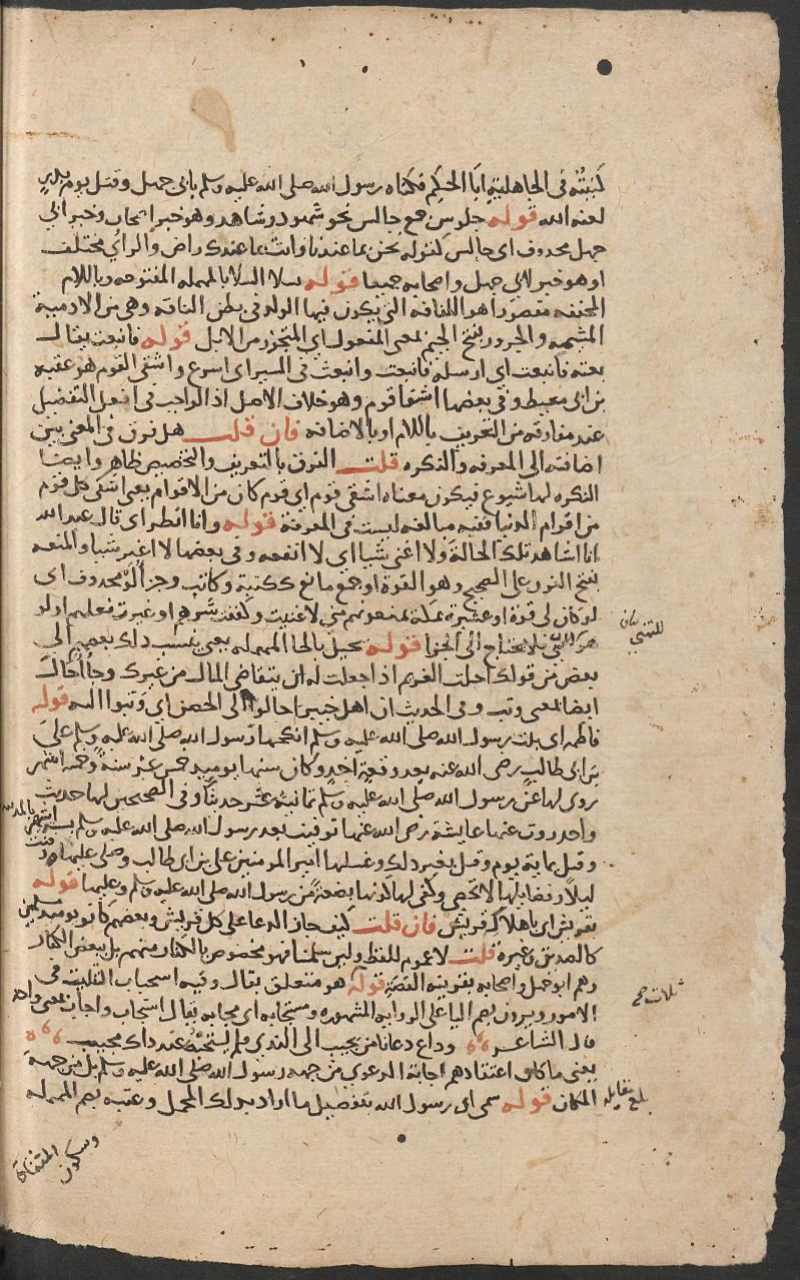 كنيته في الجاهلية ابا الحكم فكناه رسول الله صلى الله عليه وسلم بابي جهل وقتل يوم بدر
لعنه الله قوله جلوس جمع جالس نحو شهود وشاهد وهو خبر اصحاب وخبر ابي
جهل محذوف اى جالس كقوله نحن بما عندنا وانت بما عندك راض والراي مختلف
او هو خبر لابي جهل واصحابه جميعا قوله بسلا السلا بالمهملة المفتوحه وباللام
المخففه مقصورا هو اللفافه التي يكون فيها الولد في بطن الناقه وهي من الادمية
المشيمه والجزور بفتح الجيم بمعنى المفعول اي المنحور من الابل قوله فانبعث يقال
بعثه فانبعث اي ارسله فانبعث وانبعث في السير اي اسرع واشقى القوم هو عقبه
بن ابي معيط وفي بعضها اشقا قوم وهو خلاف الاصل اذ الواجب في افعل التفضيل
عند مفارقته من التعريف باللام او بالاضافه فان قلت هل فرق في المعنى بين
اضافته الى المعرفه والنكره قلت الفرق بالتعريف والتخصيص ظاهر وايضا
النكره لها شيوع فيكون معناه اشقى قوم اي قوم كان من الاقوام يعني اشقى كل قوم
من اقوام الدنيا ففيه مبالغه ليست في المعرفة قوله وانا انظر اي قال عبد الله
انا اشاهد تلك الحالة ولا اغني شيا اي لا انفعه وفي بعضها لا اغير شيا والمنعه
بفتح النون على الصحيح وهو القوة او جمع مانع ككتبة وكاتب وجزا لو محذوف اي
لو كان لي قوة او عشيرة بمكة يمنعونهم مني لاغنيت وكففت شرهم او غيرت فعلهم او لو
هو للتمني فلا يحتاج الى الجزا قوله يحيل بالحا المهمله يعني ينسب ذلك بعضهم الى
بعض من قولك احلت الغريم اذا جعلت له ان يتقاضى المال من غيرك وجا احال
ايضا بمعنى وثب وفي الحديث ان اهل خيبر احالوا الى الحصن اي وثبوا اليه قوله
فاطمه اي بنت رسول الله صلى الله عليه وسلم انكحها رسول الله صلى الله عليه وسلم علي
بن ابي طالب رضى الله عنه بعد وقعة احد وكان سنها يوميذ خمس عشر سنة وخمسه اشهر
روي لها عن رسول الله صلى الله عليه وسلم ثمانية عشر حديثا وفي الصحيحين لها حديث
واحد روت عنها عايشة رضى الله عنها توفيت بعد رسول الله صلى الله عليه وسلم بستة اشهر بالمدينه
وقيل بماية يوم وقيل بغير ذلك وغسلها امير المومنين علي بن ابي طالب وصلى عليها ودفنت
ليلا وفضايلها لا تحصى وكفى لها كونها بضعة من رسول الله صلى الله عليه وسلم وعليها قوله
بقريش اي باهلاك قريش فان قلت كيف جاز الدعا على كل قريش وبعضهم كانوا يوميذ مسلمين
كالصديق وغيره قلت لا عموم للفظ ولين سلمنا فهو مخصوص بالكفار منهم بل ببعض الكفار
وهم ابو جهل واصحابه بقرينه القصة قوله هو متعلق بقال وفيه استحباب التثليث في
الامور ويرون بضم اليا على الروايه المشهوره ومستجابه اي مجابه يقال استجاب واجاب بمعنى واحد
قال الشاعر وداع دعا يا من يجيب الى الندى فلم يستجبه عند ذاك مجيب
يعني ما كان اعتقادهم اجابة الدعوي من جهه رسول الله صلى الله عليه وسلم بل من جهة
المكان قوله سمى اي رسول الله بتفصيل ما اراد بذلك المجمل وعتبه بضم المهمله
للتمني بيان
ثلاث صح
بلغ مقابله
وسكون المثناة